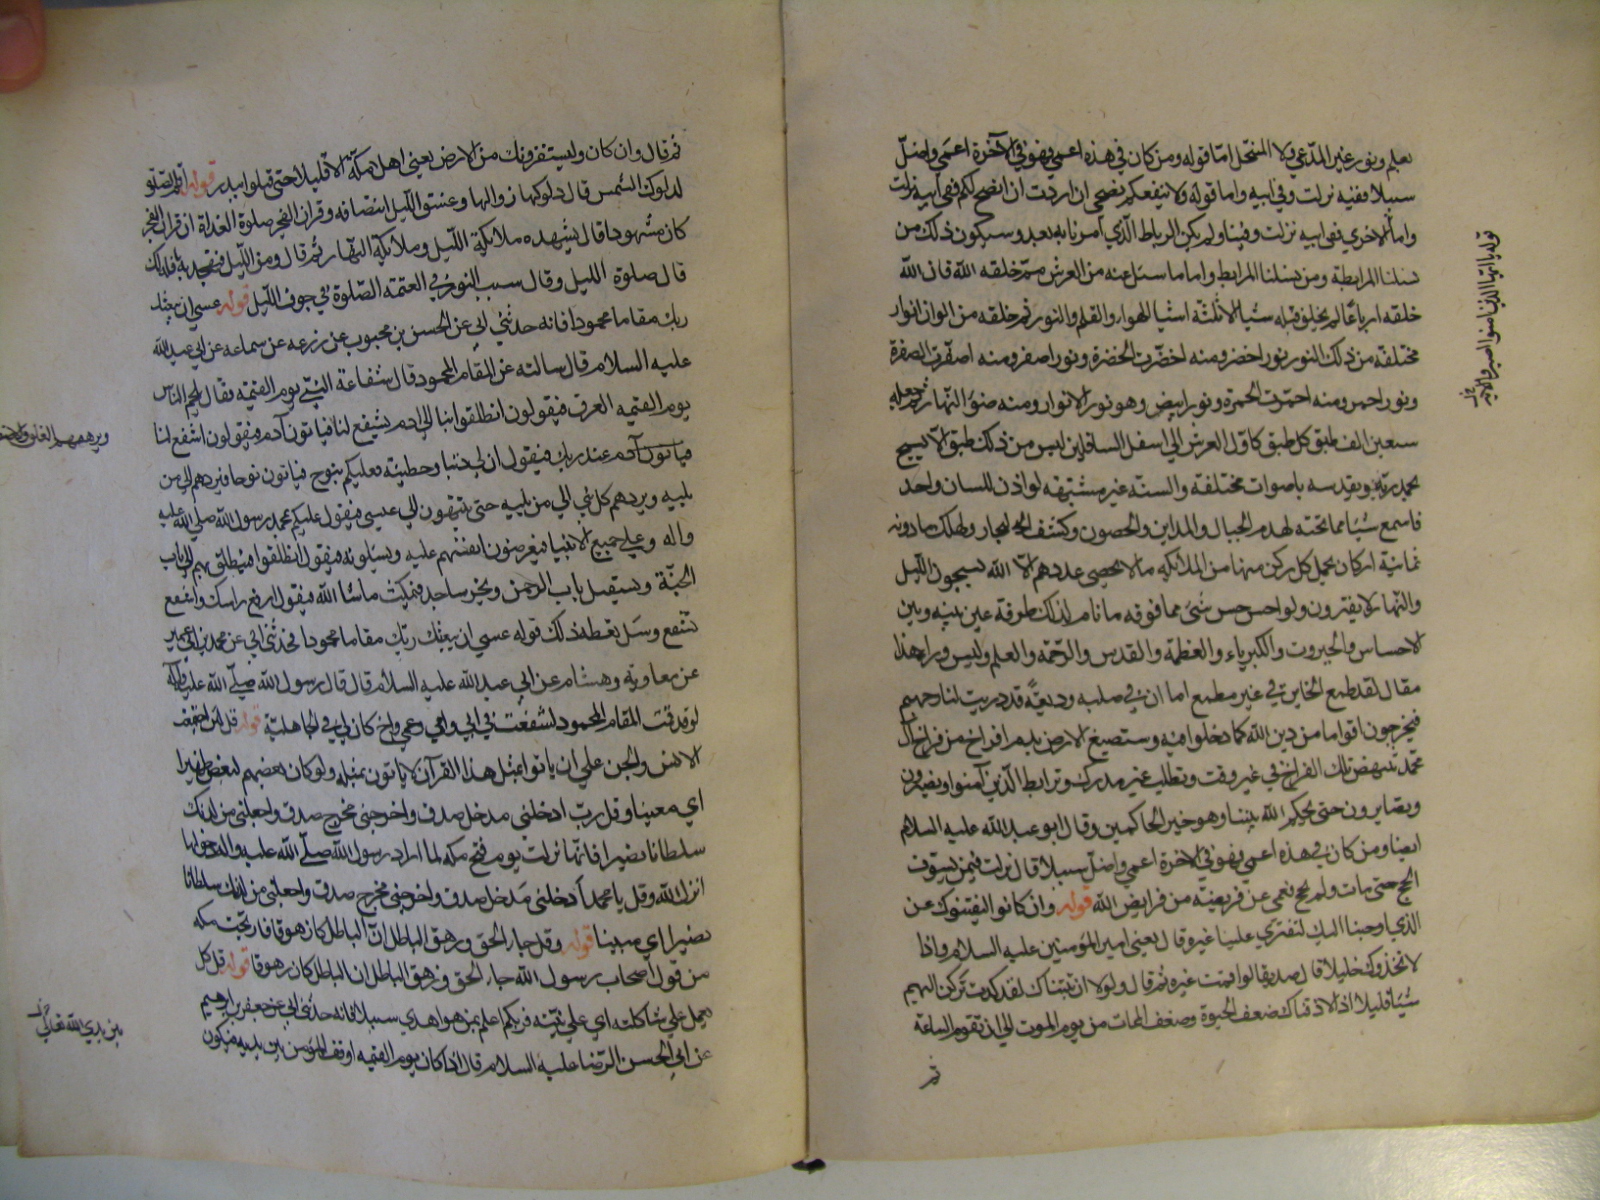 نعلم ونور غير المدعي ولا المنتحل اما قوله ومن كان في هذه اعمى فهو في الآخرة اعمى واضل
سبيلا ففيه نزلت وفي ابيه واما قوله ولا ينفعكم نصحي ان اردت ان انصح لكم ففي ابيه نزلت
واما الاخرى ففي ابيه نزلت وفينا ولم يكن الرباط الذي امرنا به بعد وسيكون ذلك من
نسلنا المرابطة ومن نسلنا المرابط واما ما سئل عنه من العرش مم خلقه الله فان الله
خلقه ارباعا لم يخلق قبله شيئا الا ثلثة اشيا الهواء والقلم والنور ثم خلقه من الوان انوار
مختلفه من ذلك النور نور اخضر ومنه اخضرت الخضرة ونور اصفر ومنه اصفرت الصفرة
ونور احمر ومنه احمرت الحمرة ونور ابيض وهو نور الانوار ومنه ضوء النهار ثم جعله
سبعين الف طبق كل طبق كاول العرش الى اسفل السافلين ليس من ذلك طبق الا يسبح
بحمد ربه ويقدسه باصوات مختلفة والسنة غير مشتبهه لو اذن للسان واحد
فاسمع شيئا مما تحته لهدم الجبال والمداين والحصون وكشف البحار ولهلك ما دونه
ثمانية اركان يحمل كل ركن منها من الملائكه ما لا يحصى عددهم الا الله يسبحون الليل
والنهار لا يفترون ولو احس حس شئ مما فوقه ما نام لذلك طرفة عين بينه وبين
الاحساس والجبروت والكبرياء والعظمة والقدس والرحمة والعلم وليس وراء هذا
مقال لقد طمع الخاين في غير مطمع اما ان في صلبه وديعة قد ذريت لنار جهنم
فيخرجون اقواما من دين الله كما دخلوا فيه وستصبغ الارض بدم افراخ من فراخ آل
محمد تنهض تلك الفراخ في غير وقت وتطلب غير مدرك وترابط الذين آمنوا ويصبرون
ويصابرون حتى يحكم الله بيننا وهو خير الحاكمين وقال ابو عبد الله عليه السلام
ايضا ومن كان في هذه اعمى فهو في الآخرة اعمى واضل سبيلا قال نزلت فيمن يسوف
الحج حتى مات ولم يحج فعمي عن فريضة من فرايض الله قوله وان كادوا ليفتنوك عن
الذي اوحينا اليك لتفتري علينا غيره قال يعني امير المؤمنين عليه السلام واذا
لاتخذوك خليلا قال صديقا لو اقمت غيره ثم قال ولولا ان ثبتناك لقد كدت تركن اليهم
شيئا قليلا اذا لاذقناك ضعف الحيوة وضعف الممات من يوم الموت الى ان تقوم الساعة
ثم
قوله يا ايها الذين امنوا اصبروا
ثم قال وان كادوا ليستفزونك من الارض يعني اهل مكة الا قليلا حتى قتلوا ببدر قوله اقم الصلوة
لدلوك الشمس قال دلوكها زوالها وغسق الليل انتصافه وقران الفجر صلوة الغداة ان قران الفجر
كان مشهودا قال يشهده ملائكة الليل وملائكة النهار ثم قال ومن الليل فتهجد به نافلة لك
قال صلوة الليل وقال سبب النور في القيمة الصلوة في جوف الليل قوله عسى ان يبعثك
ربك مقاما محمودا فانه حدثني ابي عن الحسن بن محبوب عن زرعه عن سماعه عن ابي عبد الله
عليه السلام قال سالته عن المقام المحمود قال شفاعة النبي يوم القيمه فقال يلجم الناس
يوم القيمه العرق فيقولون انطلقوا بنا الى ادم يشفع لنا فياتون آدم فيقولون اشفع لنا
عند ربك فيقول ان لي ذنبا وخطيئه فعليكم بنوح فياتون نوحا فيردهم الى من
يليه ويردهم كل نبي الى من يليه حتى ينتهون الى عيسى فيقول عليكم بمحمد رسول الله صلى الله عليه
واله وعلى جميع الانبيا فيعرضون انفسهم عليه ويسئلونه فيقول انطلقوا فينطلق بهم الى باب
الجنة ويستقبل باب الرحمن ويخر ساجدا فيمكث ما شاء الله فيقول ارفع راسك واشفع
تشفع وسل تعطه ذلك قوله عسى ان يبعثك ربك مقاما محمودا فحدثني ابي عن محمد بن ابي عمير
عن معاويه وهشام عن ابي عبد الله عليه السلام قال قال رسول الله صلى الله عليه وآله
لو قد قمت المقام المحمود لشفعت في ابي وامي وعمي واخ كان لي في الجاهلية قوله قل لئن اجتمعت
الانس والجن على ان ياتوا بمثل هذا القرآن لا ياتون بمثله ولو كان بعضهم لبعض ظهيرا
اي معينا وقل رب ادخلني مدخل صدق واخرجني مخرج صدق واجعلني من لدنك
سلطانا نصيرا فانها نزلت يوم فتح مكه لما اراد رسول الله صلى الله عليه واله دخولها
انزل الله وقل يا محمد ادخلني مدخل صدق واخرجني مخرج صدق واجعلني من لدنك سلطانا
نصيرا اي مبينا قوله وقل جاء الحق وزهق الباطل ان الباطل كان زهوقا فارتجت مكه
من قول اصحاب رسول الله جاء الحق وزهق الباطل ان الباطل كان زهوقا قوله قل كل
يعمل على شاكلته اي على نيته فربكم اعلم بمن هو اهدى سبيلا فانه حدثني ابي عن جعفر بن ابراهيم
عن ابي الحسن الرضا عليه السلام قال اذا كان يوم القيمه اوقف المؤمن بين يديه فيكون
بين يدي الله تعالى